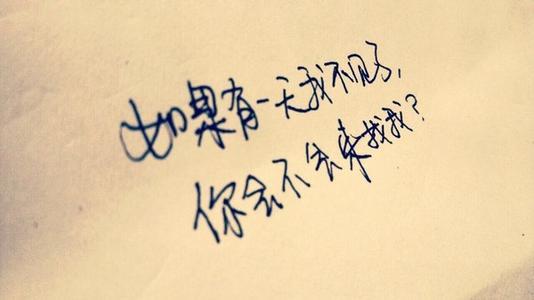 如果有一天我不见了，
你会不会来找我？